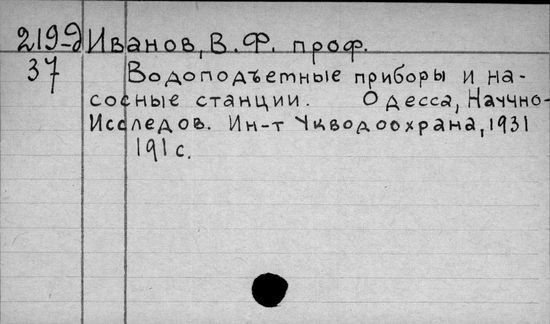 219-д Иванов, В. Ф. проф.
37 Водоподъемные приборы и на-
сосные станции. Одесса, Научно-
Исследов. Ин-т Укводоохрана, 1931
191 с.